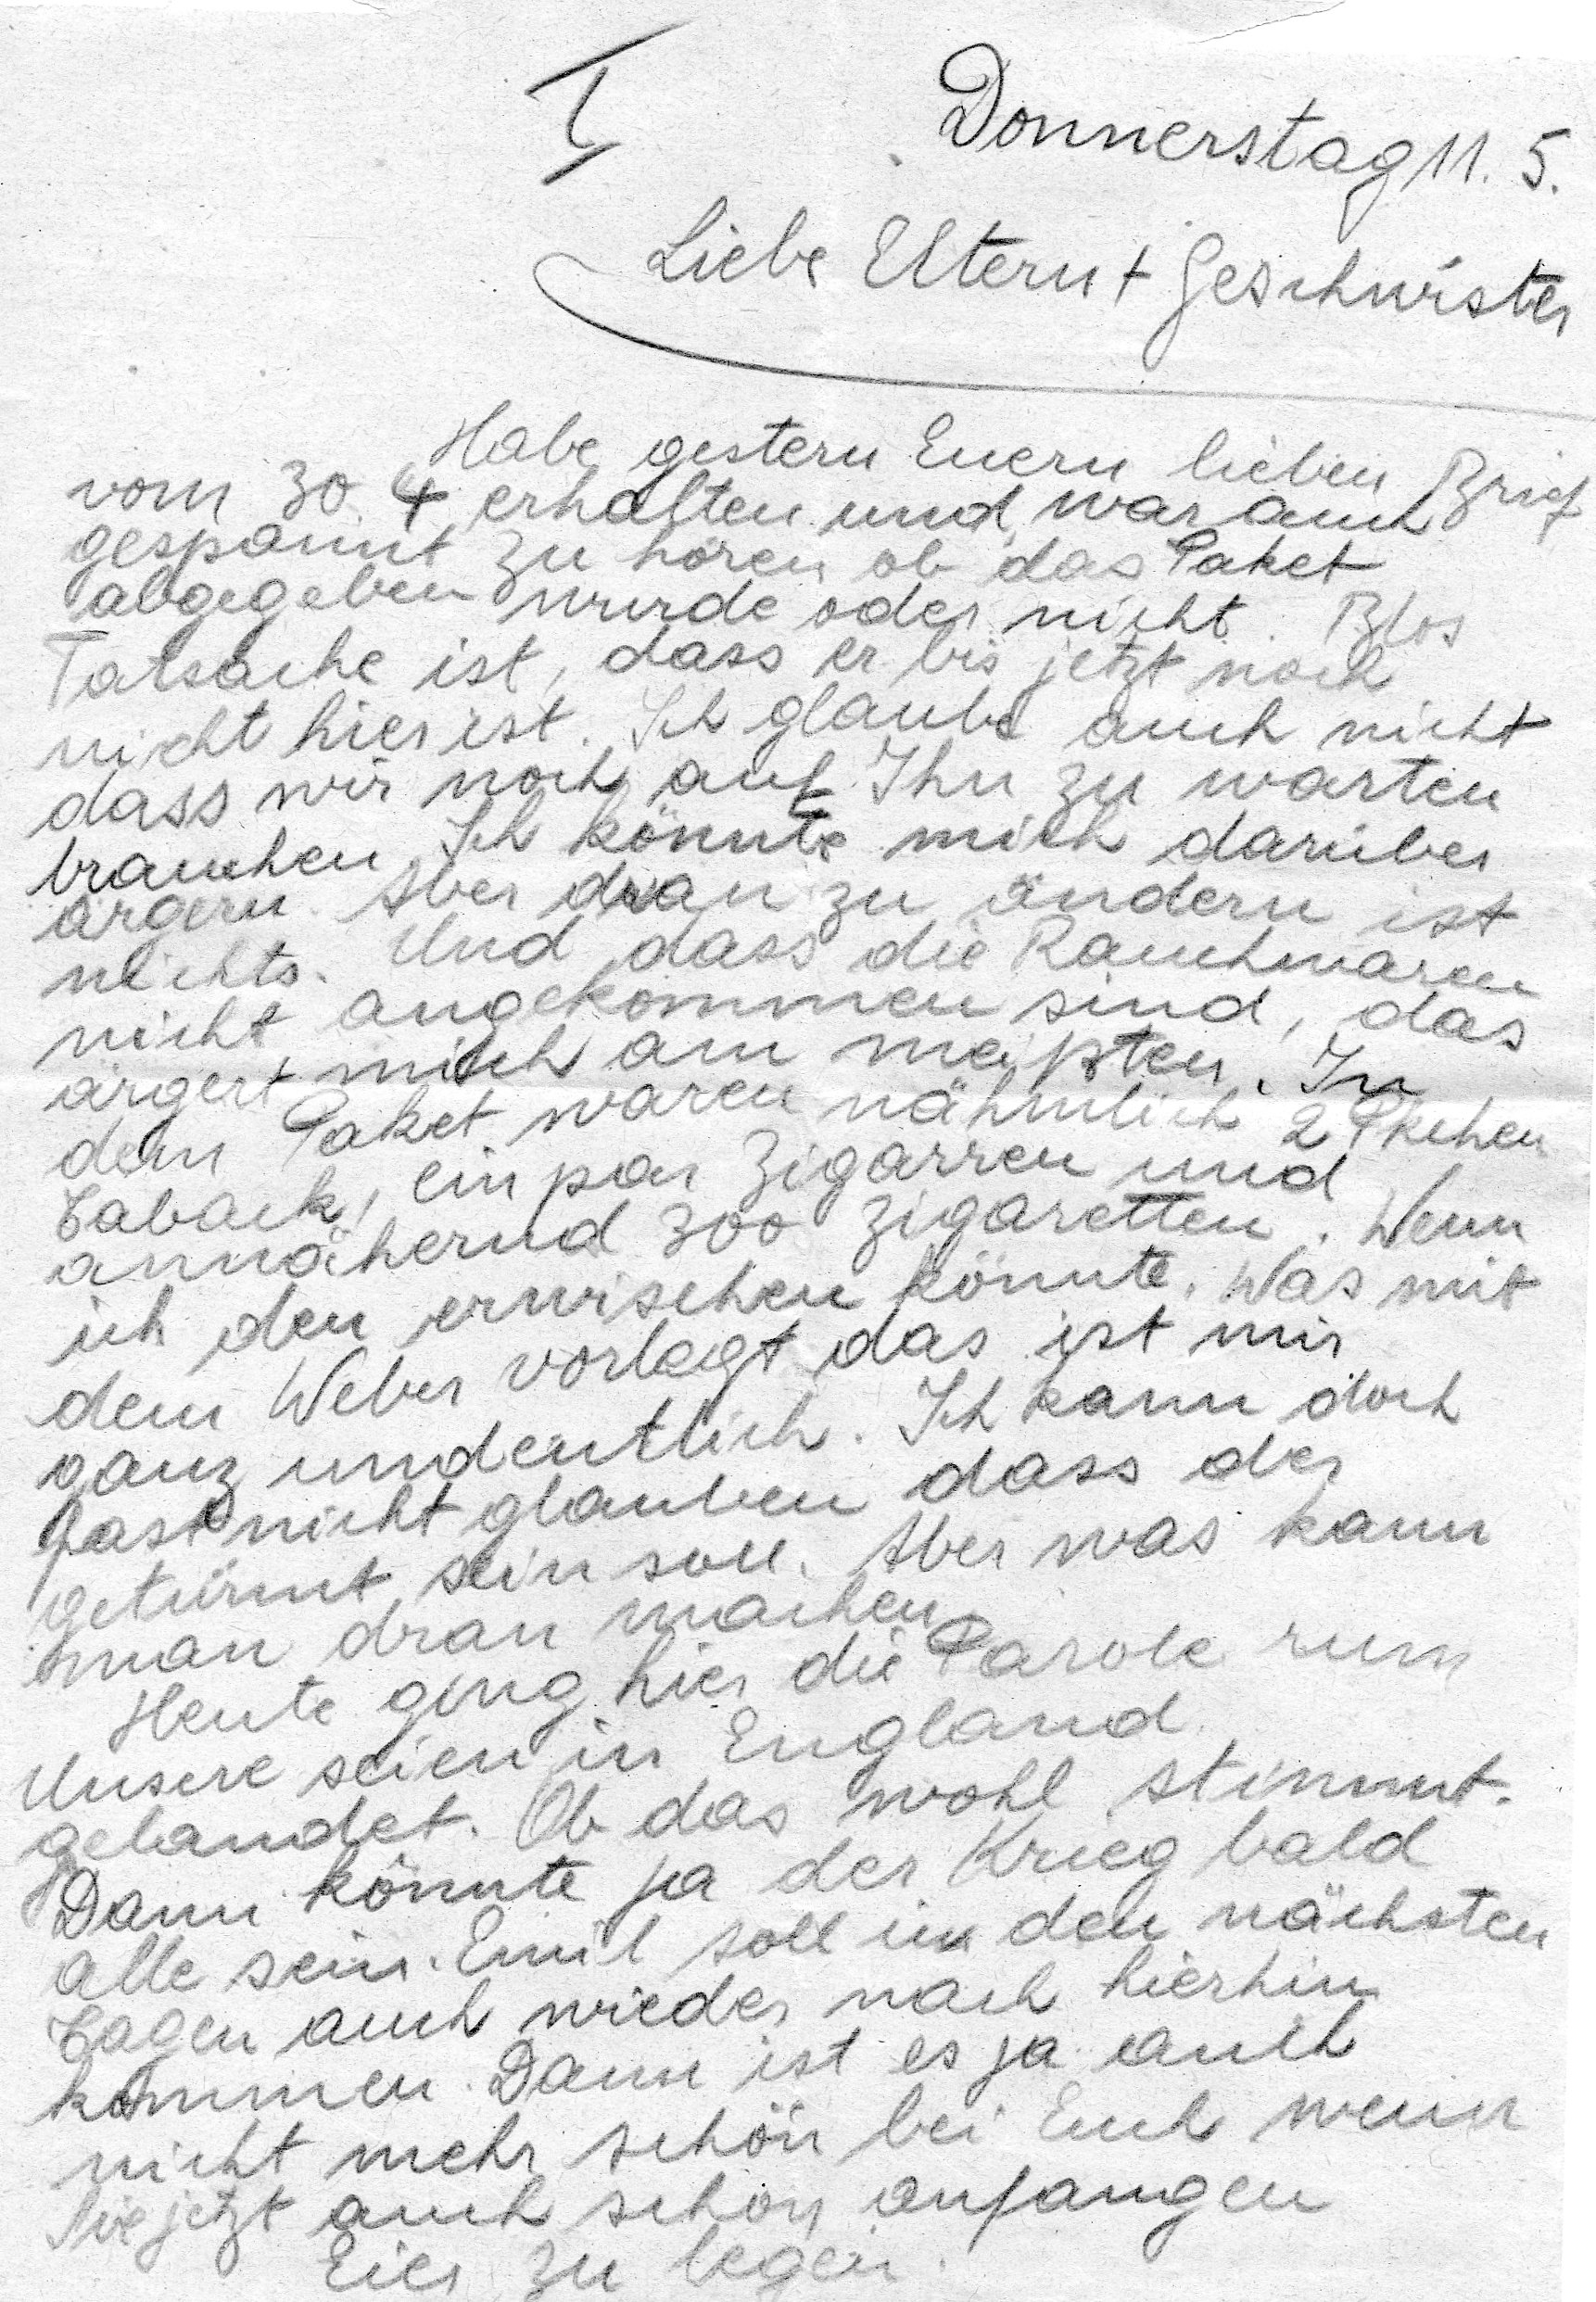 I
Donnerstag 11. 5.
Liebe Eltern + Geschwister
Habe gestern Euern lieben Brief
vom 30. 4 erhalten und war auch
gespannt zu hören ob das Paket
abgegeben wurde oder nicht. Blos
Tatsache ist, dass er bis jetzt noch
nicht hier ist. Ich glaube auch nicht
dass wir noch auf Ihn zu warten
brauchen. Ich könnte mich darüber
ärgern. Aber dran zu ändern ist
nichts. Und dass die Rauchwaren
nicht angekommen sind, das
ärgert mich am meisten. In
dem Paket waren nähmlich 2 Pkchen
Taback, ein par Zigarren und
annähernd 300 Zigaretten. Wenn
ich den erwischen könnte. Was mit
dem Weber vorlegt das ist mir
ganz undeutlich. Ich kann doch
fast nicht glauben dass der
getürmt sein soll. Aber was kann
man dran machen
Heute ging hier die Parole rum
Unsere seien in England
gelandet. Ob das wohl stimmt.
Dann könnte ja der Krieg bald
alle sein. Emil soll in den nächsten
Tagen auch wieder nach hierhin
kommen. Dann ist es ja auch
nicht mehr schön bei Euch wenn
Sie jetzt auch schon anfangen
Eier zu legen.